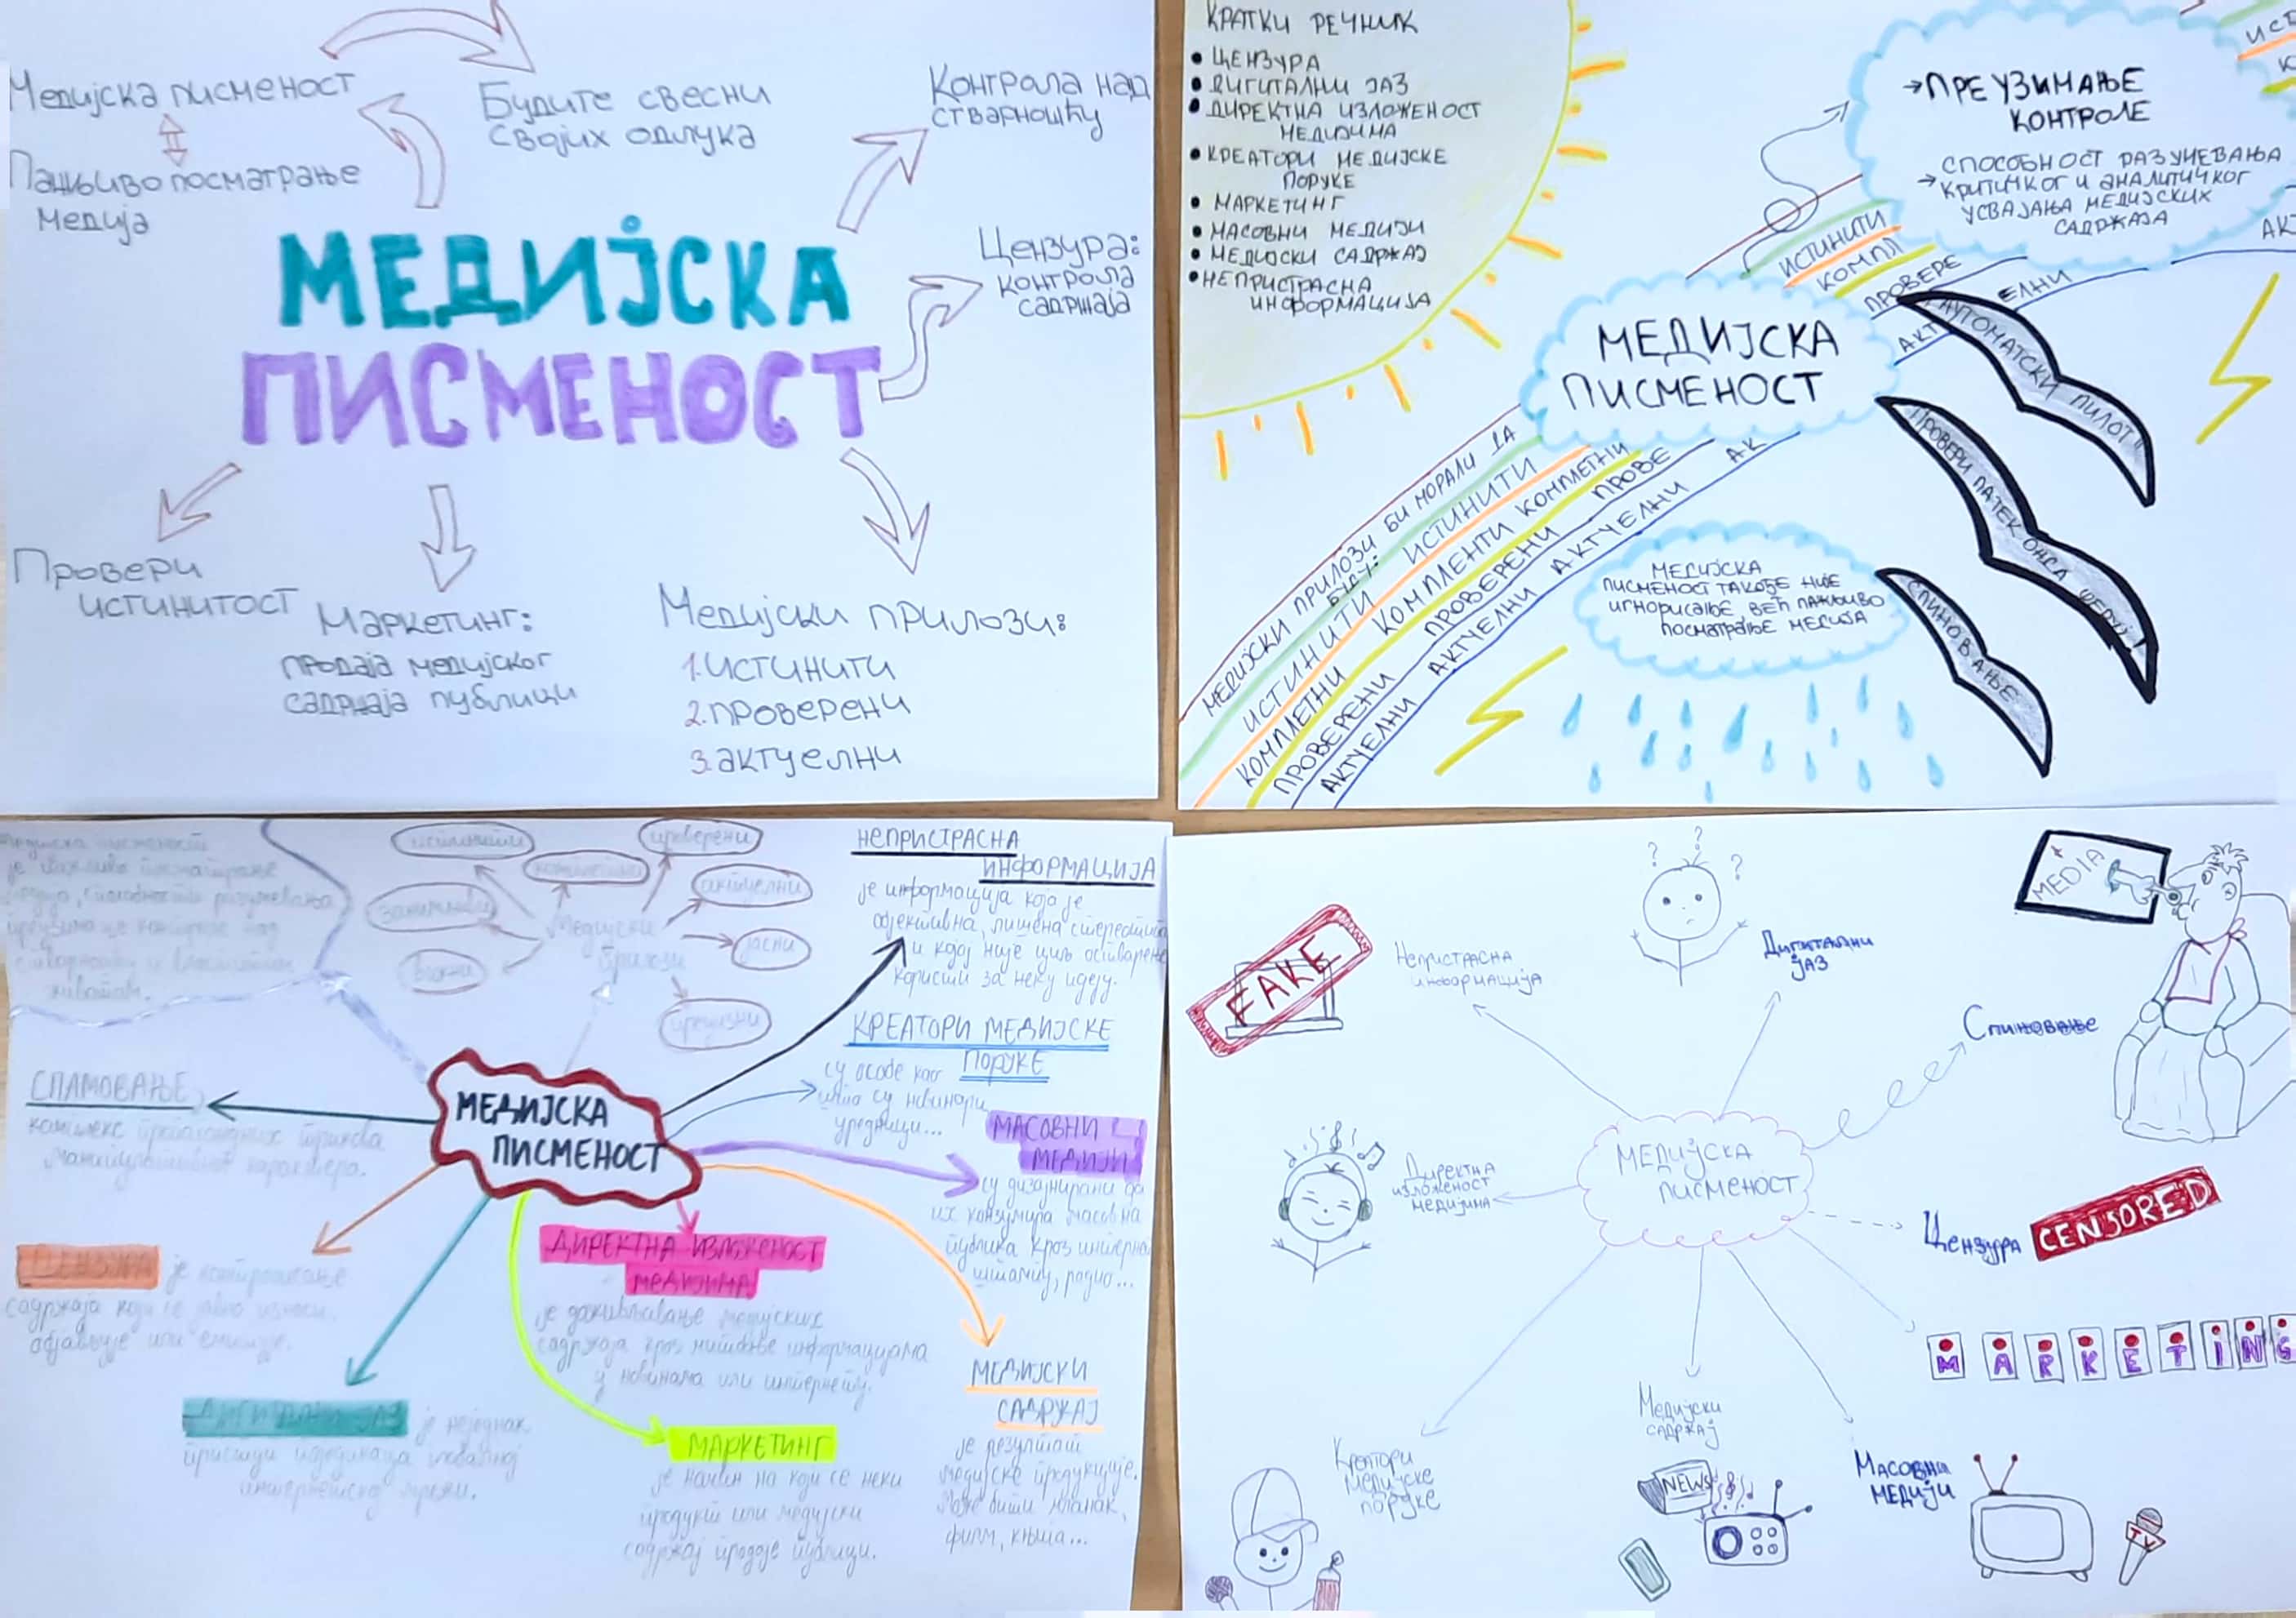 Медијска писменост
Пажљиво посматрање
медија
Будите свесни
својих одлука
Контрола над
стварношћу
Цензура:
контрола
садржаја
МЕДИЈСКА
ПИСМЕНОСТ
Провери
истинитост
Маркетинг:
продаја медијског
садржаја публици
Медијски прилози:
1. истинити
2. проверени
3. актуелни
КРАТКИ РЕЧНИК
• ЦЕНЗУРА
• ДИГИТАЛНИ ЈАЗ
• ДИРЕКТНА ИЗЛОЖЕНОСТ
МЕДИЈИМА
• КРЕАТОРИ МЕДИЈСКЕ
ПОРУКЕ
• МАРКЕТИНГ
• МАСОВНИ МЕДИЈИ
• МЕДИЈСКИ САДРЖАЈ
• НЕПРИСТРАСНА
ИНФОРМАЦИЈА
→ ПРЕУЗИМАЊЕ
КОНТРОЛЕ
СПОСОБНОСТ РАЗУМЕВАЊА
→ КРИТИЧКОГ И АНАЛИТИЧКОГ
УСВАЈАЊА МЕДИЈСКИХ
САДРЖАЈА
ИСТИНИТИ
КОМПЛ
ПРОВЕРЕ
АКТ ЕЛНИ
МЕДИЈСКА
ПИСМЕНОСТ
АУТОМАТСКИ ПИЛОТ
ПРОВЕРИ ПАТЕК ОНДА ШЕРУЈ
СПИНОВАЊЕ
МЕДИЈСКИ ПРИЛОЗИ БИ МОРАЛИ ДА
БУДУ:
ИСТИНИТИ ИСТИНИТИ ИСТИНИТИ
КОМПЛЕТНИ КОМПЛЕНТИ КОМПЛЕТНИ
ПРОВЕРЕНИ ПРОВЕРЕНИ ПРОВЕ
АКТУЕЛНИ АКТУЕЛНИ АКТУЕЛНИ АК
МЕДИЈСКА
ПИСМЕНОСТ ТАКОЂЕ НИЈЕ
ИГНОРИСАЊЕ ВЕЋ ПАЖЉИВО
ПОСМАТРАЊЕ МЕДИЈА
је пажљиво посматрање
истинити
проверени
комплетни
актуелни
занимљиви
Медијски
прилози
јасни
важни
прецизни
НЕПРИСТРАСНА
ИНФОРМАЦИЈА
је информација која је
објективна, лишена стереотипа
и којој није циљ остварење
користи за неку идеју.
КРЕАТОРИ МЕДИЈСКЕ
ПОРУКЕ
су особе као
што су новинари,
уредници...
МАСОВНИ
МЕДИЈИ
су дизајнирани да
их конзумира масовна
публика кроз интернет
штампу, радио...
СПАМОВАЊЕ
комплекс пропагандних трикова
манипулативног карактера.
МЕДИЈСКА
ПИСМЕНОСТ
ЦЕНЗУРА је контролисање
садржаја који се јавно износи,
објављује или емитује.
ДИРЕКТНА ИЗЛОЖЕНОСТ
МЕДИЈИМА
је доживљавање медијских
садржаја кроз информацијама
у новинама или интернету.
ДИГИТАЛНИ ЈАЗ је неједнак
приступ појединаца глобалној
интернетској мрежи.
МАРКЕТИНГ
је начин на који се неки
продукт или медијски
садржај продаје публици.
МЕДИЈСКИ
САДРЖАЈ
је резултат
медијске продукције.
Може бити чланак,
филм, књига...
FAKE
Непристрасна
информација
? ? ?
Дигитални
јаз
MEDIA
Спиновање
Директна
изложеност
медијима
МЕДИЈСКА
ПИСМЕНОСТ
Цензура CENSORED
MARKETING
Креатори
медијске
поруке
Медијски
садржај
NEWS
Масовни
медији
TV